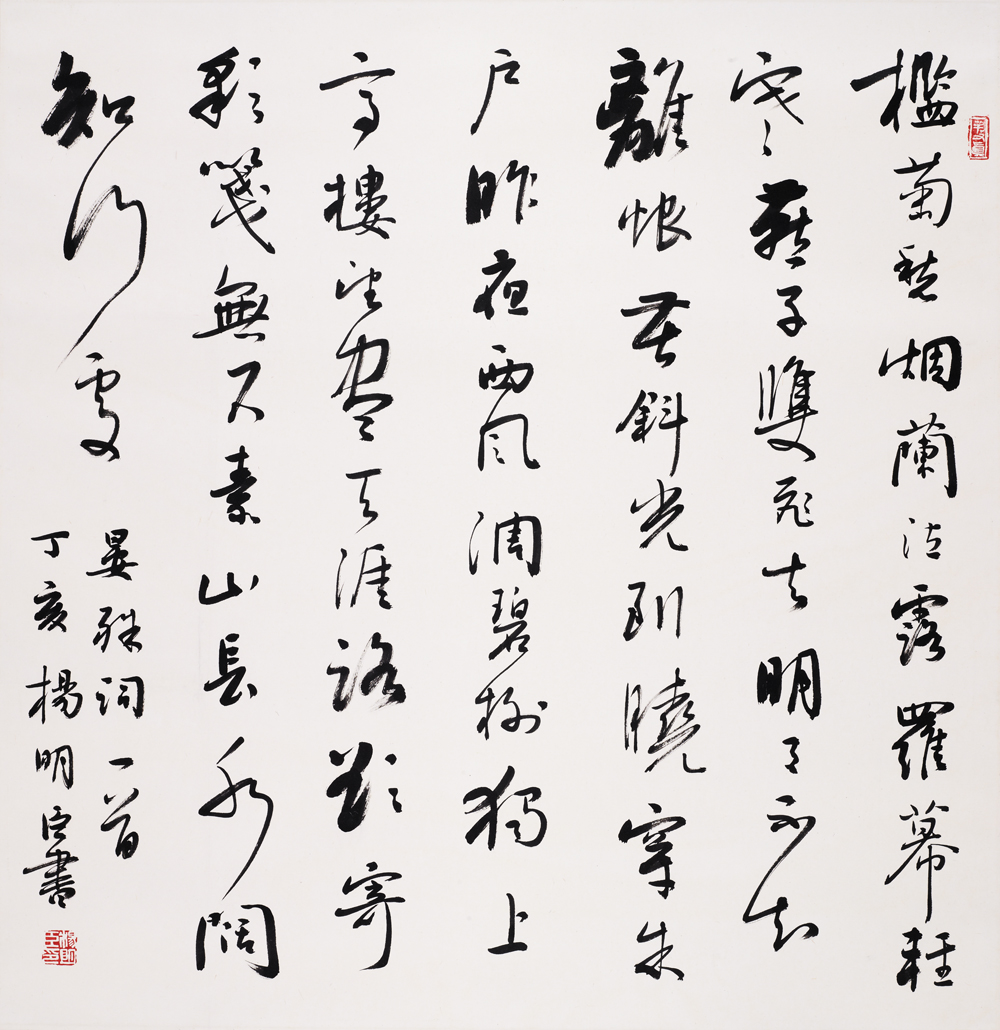 檻菊愁烟蘭泣露羅幕輕
寒燕子雙飛去明月不知
離恨苦斜光到曉穿朱
户昨夜西風凋碧樹獨上
高樓望盡天涯路欲寄
彩箋無尺素山長水闊
知何處
晏殊詞一首
丁亥楊明臣書